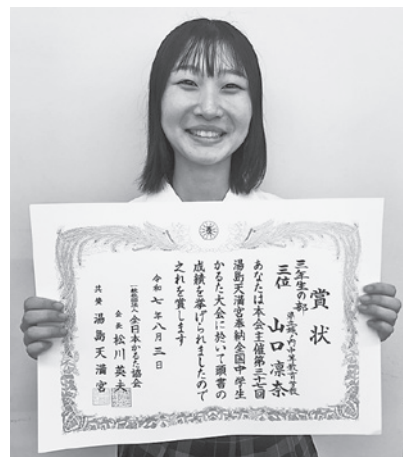 賞状
三年生の部
三位
山口凛奈
あなたは本会主催第三十七回
湯島天満宮奉納全国中学生
かるた大会に於いて頭書の
成績を挙げられましたので
之れを賞します
令和七年八月三日
一般社団法人全日本かるた協会
会長 松川英夫
共賛 湯島天満宮